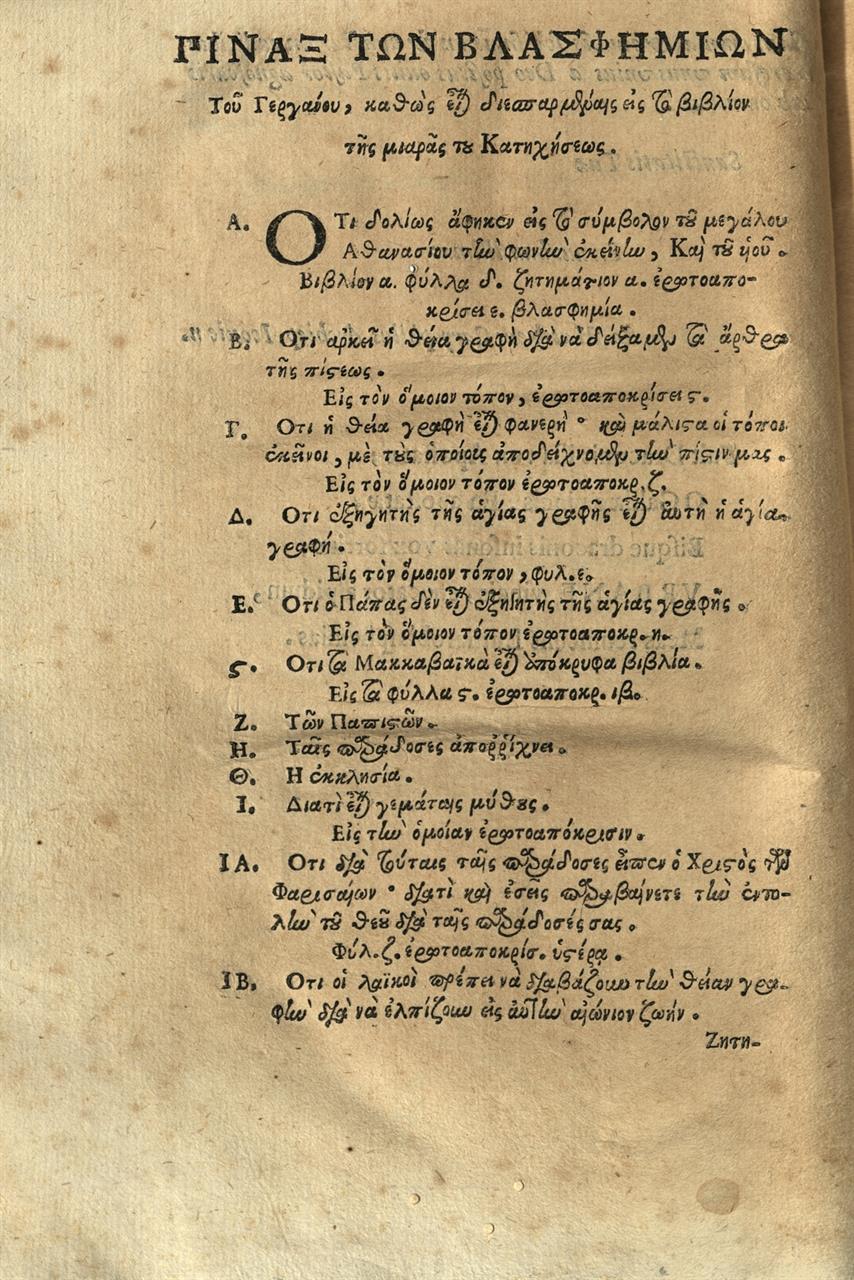 ΠΙΝΑΞ ΤΩΝ ΒΛΑΣΦΗΜΙΩΝ
Τοῦ Γεργάνου, καθὼς εἶναι διεσπαρμέναις εἰς τὸ βιβλίον
τῆς μιαρᾶς του Κατηχήσεως.
Α. ΟΤι δολίως ἄφηκεν εἰς τὸ σύμβολον τοῦ μεγάλου
Αθανασίου τὴν φωνὴν ἐκείνην, Καὶ τοῦ ἡοῦ.
Βιβλίον α. φύλλα δ. ζητημάτιον α. ἐρωταπο-
κρίσει ε. βλασφημία.
Β. Οτι ἀρκεῖ ἡ θεία γραφὴ διὰ νὰ δείξαμεν τὰ ἄρθρα
τῆς πίστεως.
Εἰς τὸν ὅμοιον τόπον, ἐρωταποκρίσει ς.
Γ. Οτι ἡ θεία γραφὴ εἶναι φανερή· καὶ μάλιστα οἱ τόποι
ἐκεῖνοι, μὲ τοὺς ὁποίοις ἀποδείχνομεν τὴν πίστιν μας.
Εἰς τὸν ὅμοιον τόπον ἐρωταποκρ. ζ.
Δ. Οτι ἐξηγητὴς τῆς ἁγίας γραφῆς εἶναι αὐτὴ ἡ ἁγία
γραφή.
Εἰς τὸν ὅμοιον τόπον, φυλ. ε.
Ε. Οτι ὁ Πάπας δὲν εἶναι ἐξηγητὴς τῆς ἁγίας γραφῆς.
Εἰς τὸν ὅμοιον τόπον ἐρωταποκρ. η.
ς. Οτι τὰ Μακκαβαϊκὰ εἶναι ἀπόκρυφα βιβλία.
Εἰς τὰ φύλλα ς. ἐρωταποκρ. ιβ.
Ζ. Τῶν Παπιστῶν.
Η. Ταῖς παράδοσες ἀποῤῥίχνει.
Θ. Η ἐκκλησία.
Ι. Διατὶ εἶναι γεμάταις μύθους.
Εἰς τὴν ὁμοίαν ἐρωταπόκρισιν.
ΙΑ. Οτι διὰ τούταις ταῖς παράδοσες εἶπεν ὁ Χριστὸς τῶν
Φαρισαίων· διατὶ καὶ ἐσεῖς παραβαίνετε τὴν ἐντο-
λὴν τοῦ θεοῦ διὰ ταῖς παράδοσές σας.
Φύλ. ζ. ἐρωταποκρίσ. ὑστέρᾳ.
ΙΒ. Οτι οἱ λαϊκοὶ πρέπει νὰ διαβάζουν τὴν θείαν γρα-
φὴν διὰ νὰ ἐλπίζουν εἰς αὐτὴν αἰώνιον ζωήν.
Ζητη-